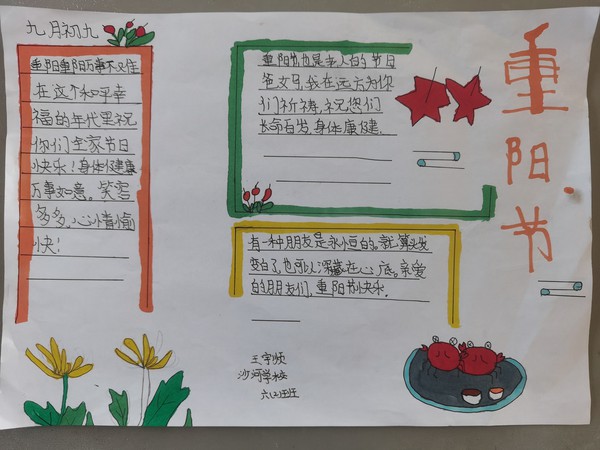 九月初九
重阳重阳万事不又佳
在这个和平幸
福的年代里祝
你们全家节日
快乐！身体健康
万事如意。笑容
多多,心情愉
快！
重阳节也是老人的节日
爸女马,我在远方为你
们祈祷,祝您们
长命百岁,身体康健.
有一种朋友是永恒的。就算头发
变白了,也可以深藏在心底。亲爱
的朋友们,重阳节快乐.
重阳节
沙河学校